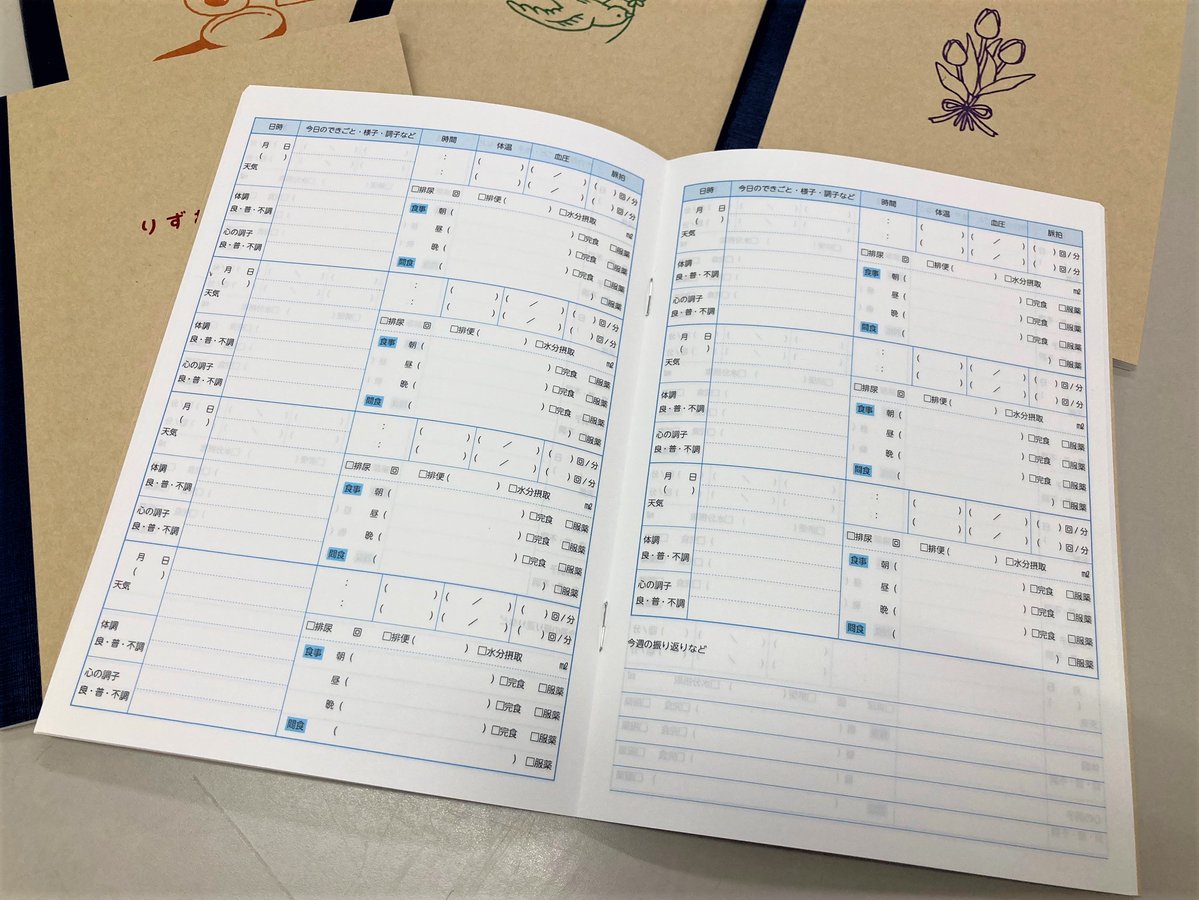 りず
日時 今日のできごと・様子・調子など 時間 体温 血圧 脈拍
月 日 : ( ) ( / ) ( ) 回/分
( ) : ( ) ( / ) ( ) 回/分
天気 □排尿 回 □排便( ) □水分摂取 ㎖
体調 食事 朝( ) □完食 □服薬
良・普・不調 昼( ) □完食 □服薬
心の調子 晩( ) □完食 □服薬
良・普・不調 間食( ) □服薬
月 日 : ( ) ( / ) ( ) 回/分
( ) : ( ) ( / ) ( ) 回/分
天気 □排尿 回 □排便( ) □水分摂取 ㎖
体調 食事 朝( ) □完食 □服薬
良・普・不調 昼( ) □完食 □服薬
心の調子 晩( ) □完食 □服薬
良・普・不調 間食( ) □服薬
月 日 : ( ) ( / ) ( ) 回/分
( ) : ( ) ( / ) ( ) 回/分
天気 □排尿 回 □排便( ) □水分摂取 ㎖
体調 食事 朝( ) □完食 □服薬
良・普・不調 昼( ) □完食 □服薬
心の調子 晩( ) □完食 □服薬
良・普・不調 間食( ) □服薬
月 日 : ( ) ( / ) ( ) 回/分
( ) : ( ) ( / ) ( ) 回/分
天気 □排尿 回 □排便( ) □水分摂取 ㎖
体調 食事 朝( ) □完食 □服薬
良・普・不調 昼( ) □完食 □服薬
心の調子 晩( ) □完食 □服薬
良・普・不調 間食( ) □服薬
日時 今日のできごと・様子・調子など 時間 体温 血圧 脈拍
月 日 : ( ) ( / ) ( ) 回/分
( ) : ( ) ( / ) ( ) 回/分
天気 □排尿 回 □排便( ) □水分摂取 ㎖
体調 食事 朝( ) □完食 □服薬
良・普・不調 昼( ) □完食 □服薬
心の調子 晩( ) □完食 □服薬
良・普・不調 間食( ) □服薬
月 日 : ( ) ( / ) ( ) 回/分
( ) : ( ) ( / ) ( ) 回/分
天気 □排尿 回 □排便( ) □水分摂取 ㎖
体調 食事 朝( ) □完食 □服薬
良・普・不調 昼( ) □完食 □服薬
心の調子 晩( ) □完食 □服薬
良・普・不調 間食( ) □服薬
月 日 : ( ) ( / ) ( ) 回/分
( ) : ( ) ( / ) ( ) 回/分
天気 □排尿 回 □排便( ) □水分摂取 ㎖
体調 食事 朝( ) □完食 □服薬
良・普・不調 昼( ) □完食 □服薬
心の調子 晩( ) □完食 □服薬
良・普・不調 間食( ) □服薬
今週の振り返りなど